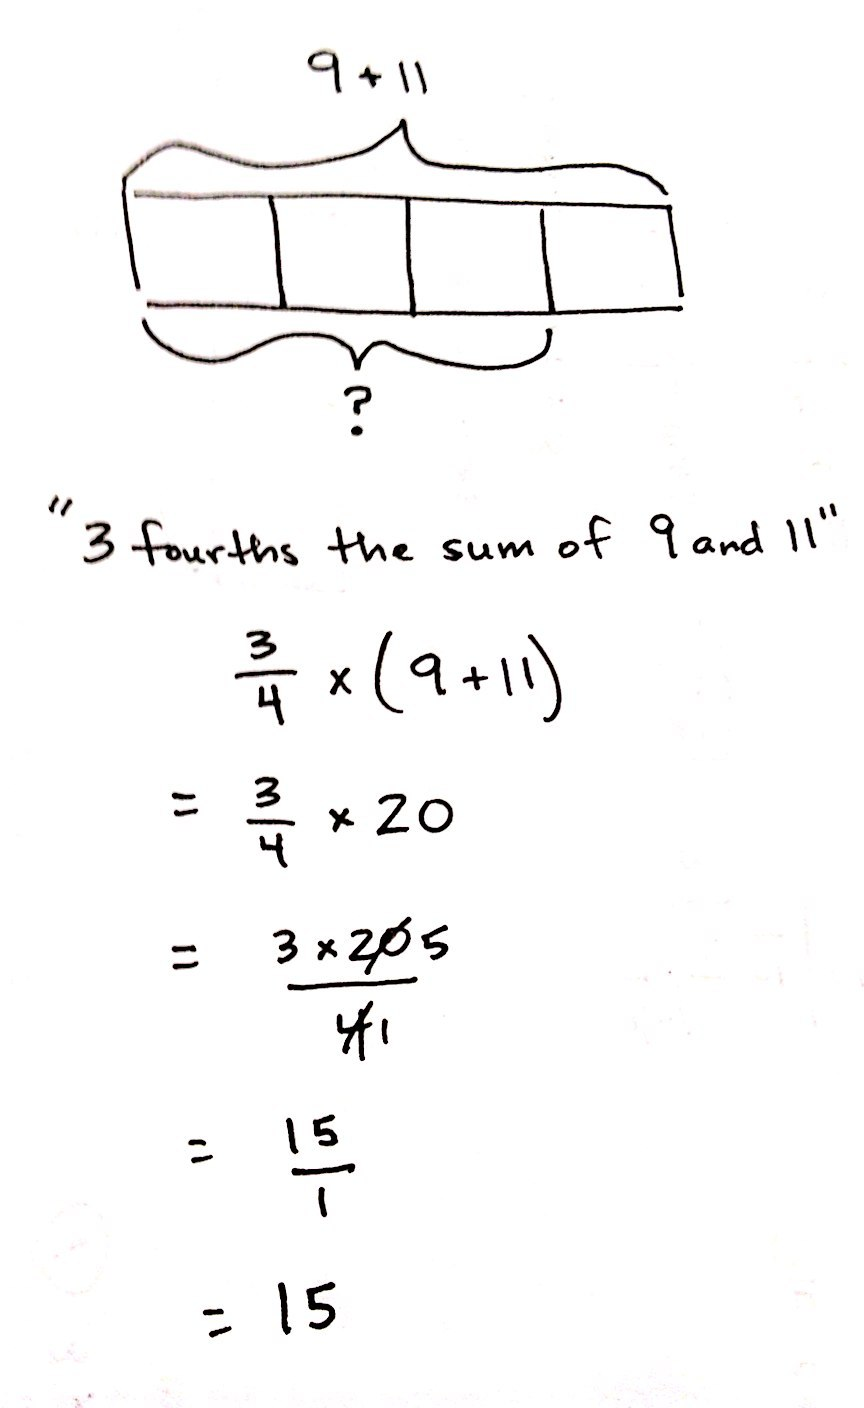 9 + 11
?
"3 fourths the sum of 9 and 11"
3/4 × (9 + 11)
= 3/4 × 20
= 3 × 20 5 / 4 1
= 15/1
= 15